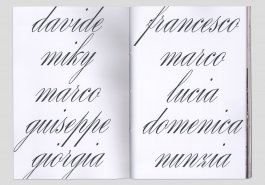 davide
miky
marco
guiseppe
giorgia
francesco
marco
lucia
domenica
nunzia